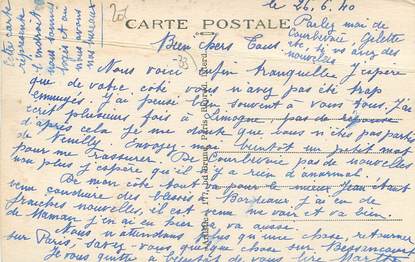 le 26.6.40
20f
CARTE POSTALE
Cette carte
représente
l'endroit
où nous
sommes
logés et où
nous avons
nos bureaux
Parlez moi de
Courbevoie Gilette
etc. si vs avez des
nouvelles
Bien chers Tous.
33
Nous voici enfin tranquille j'espère
que de votre coté vous n'avez pas été trop
ennuyés. J'ai pensé bien souvent à vous tous. J'ai
ecrit plusieurs fois à Limoges, pas de reponse
d'après cela je me doute que vous n'êtes pas partis
de Neuilly. Envoyez moi bientôt un petit mot
pour me rassurer. De Courbevoie pas de nouvelles
non plus j'espère qu'il n'y a rien d'anormal.
De mon coté tout va pour le mieux Jean étant
venu conduire des blessés à Bordeaux, j'ai eu de
fraiches nouvelles, il est venu me voir et va bien.
de Maman j'en ai eu hier ça va aussi.
Nous n'attendons plus qu'une chose, retourner
sur Paris, savez-vous quelque chose sur Bessancourt
Je vous quitte à bientôt de vous lire Marthe